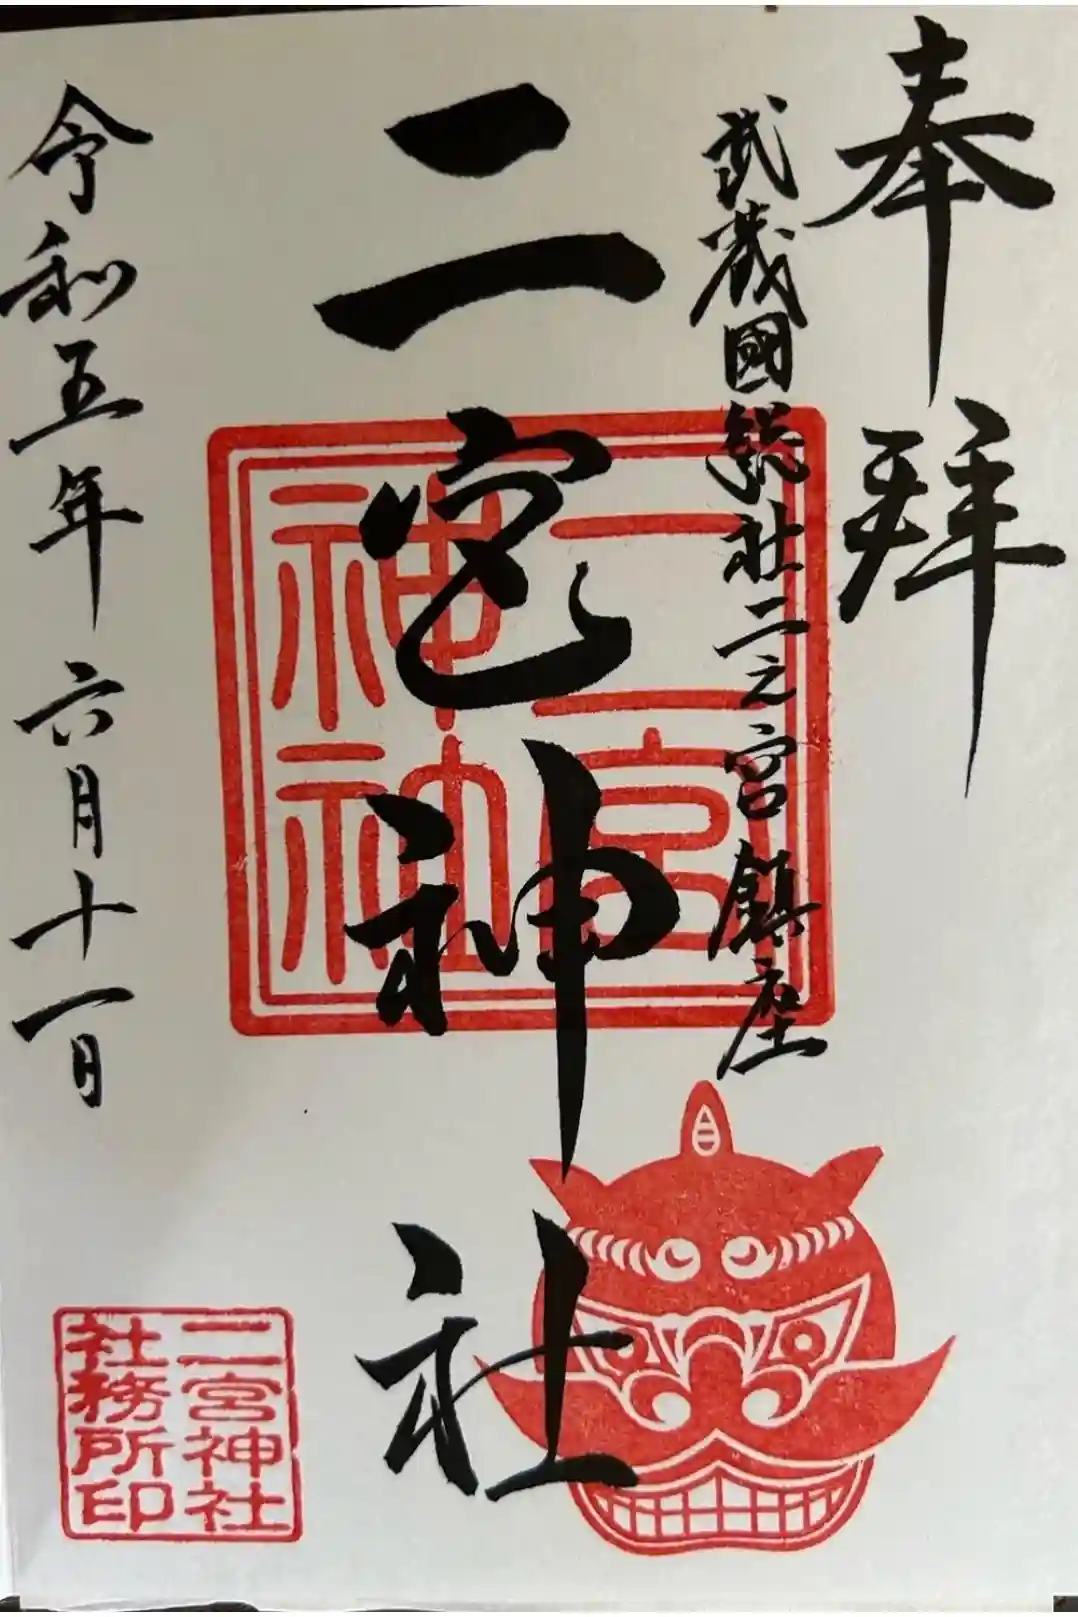 奉拜
武蔵國総社二之宮鎮座
二宮神社
二宮
神社
令和五年六月十一日
二宮神社
社務所印